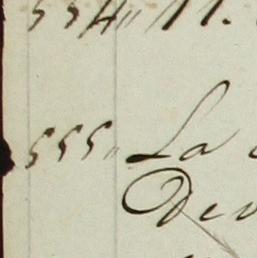 554 " 11.
555 " La
Dev